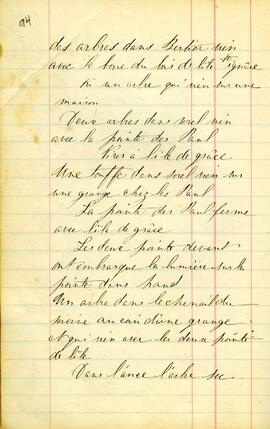 94
des arbres dans Bertier vien
avec le boue du bois de l'ile
grâce
Pi un arbre qui vien sur une
maison
Deux arbres dans sorel vien
avec la pointe des Paul
Vires à l'ile de grâce
Une touffe dans sorel vien sur
une grange chez les Paul
La pointe des Paul ferme
avec l'ile de grâce
Les deux pointe devant
ont embarque la lumière sur la
pointe dans haud
Un arbre dans le chenail du
moine au coin d'une grange
et qui vien avec les deux pointe
de l'ile
Dans l'ance l'arbre sec